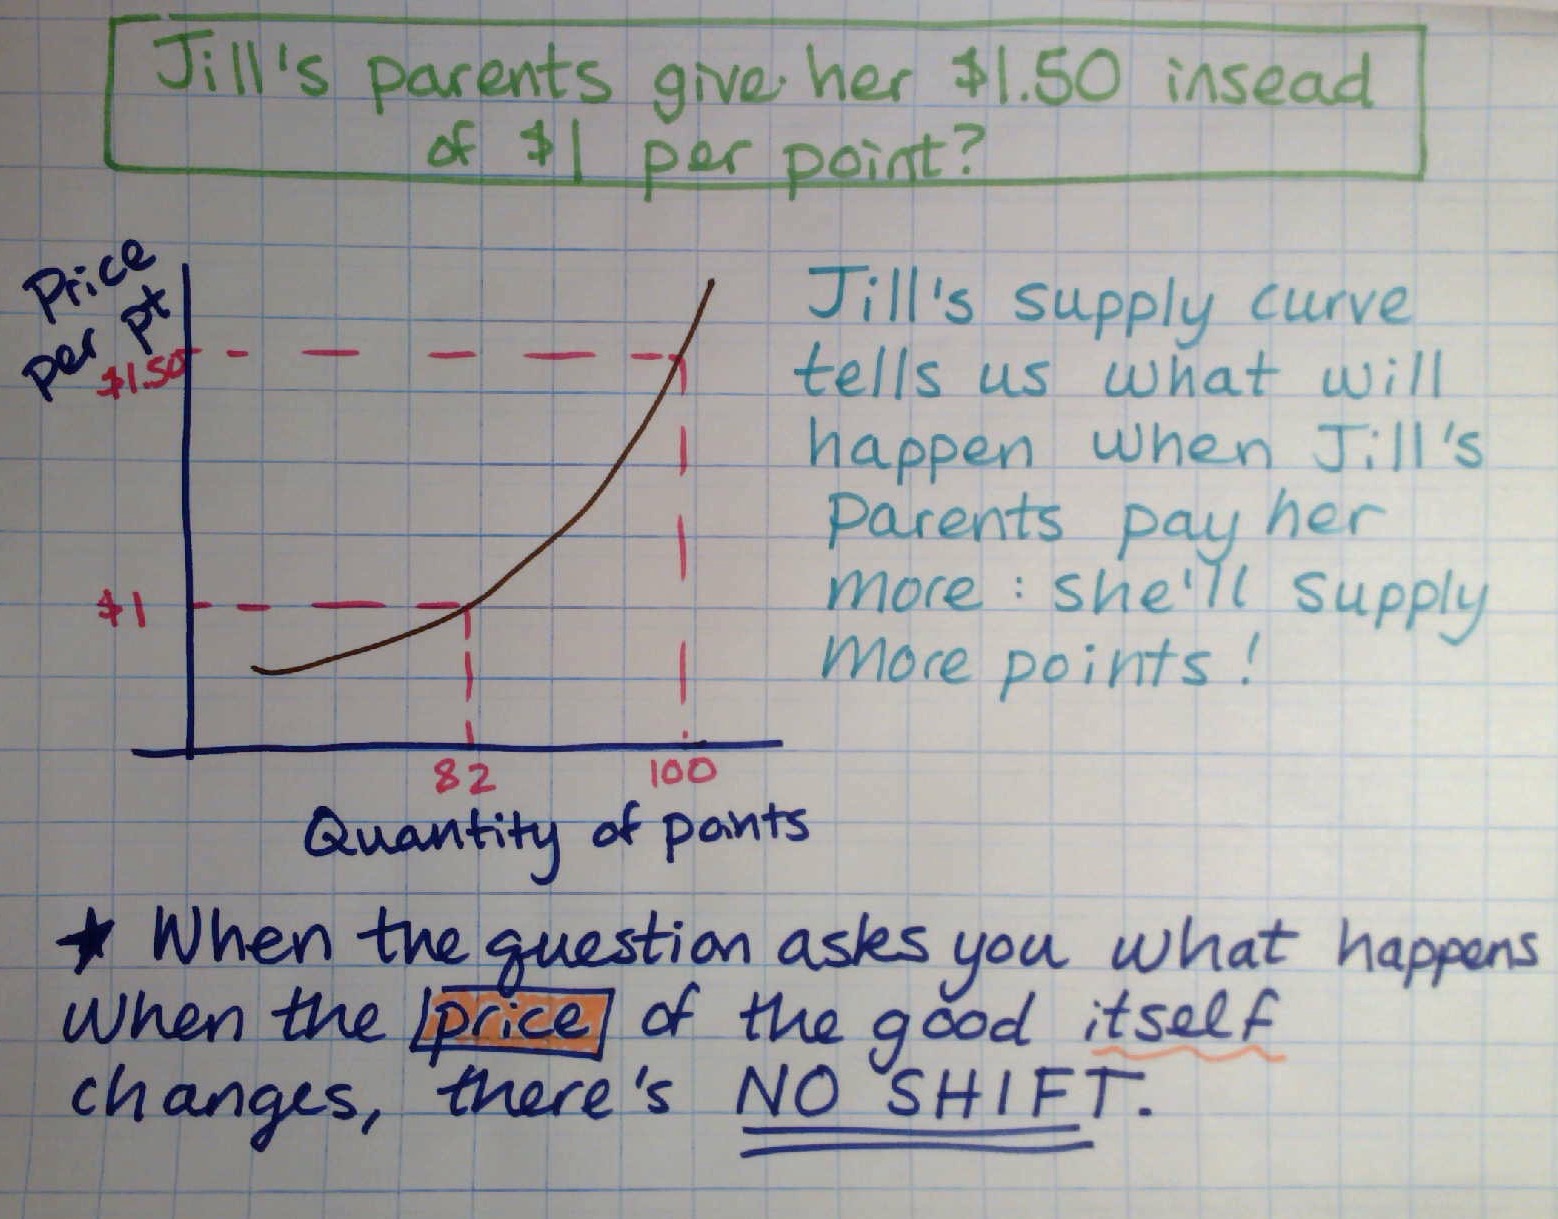 Jill's parents give her $1.50 insead
of $1 per point?
Price
per pt
$1.50
$1
82
100
Quantity of points
Jill's supply curve
tells us what will
happen when Jill's
parents pay her
more: she'll supply
more points!
★ When the question asks you what happens
when the price of the good itself
changes, there's NO SHIFT.